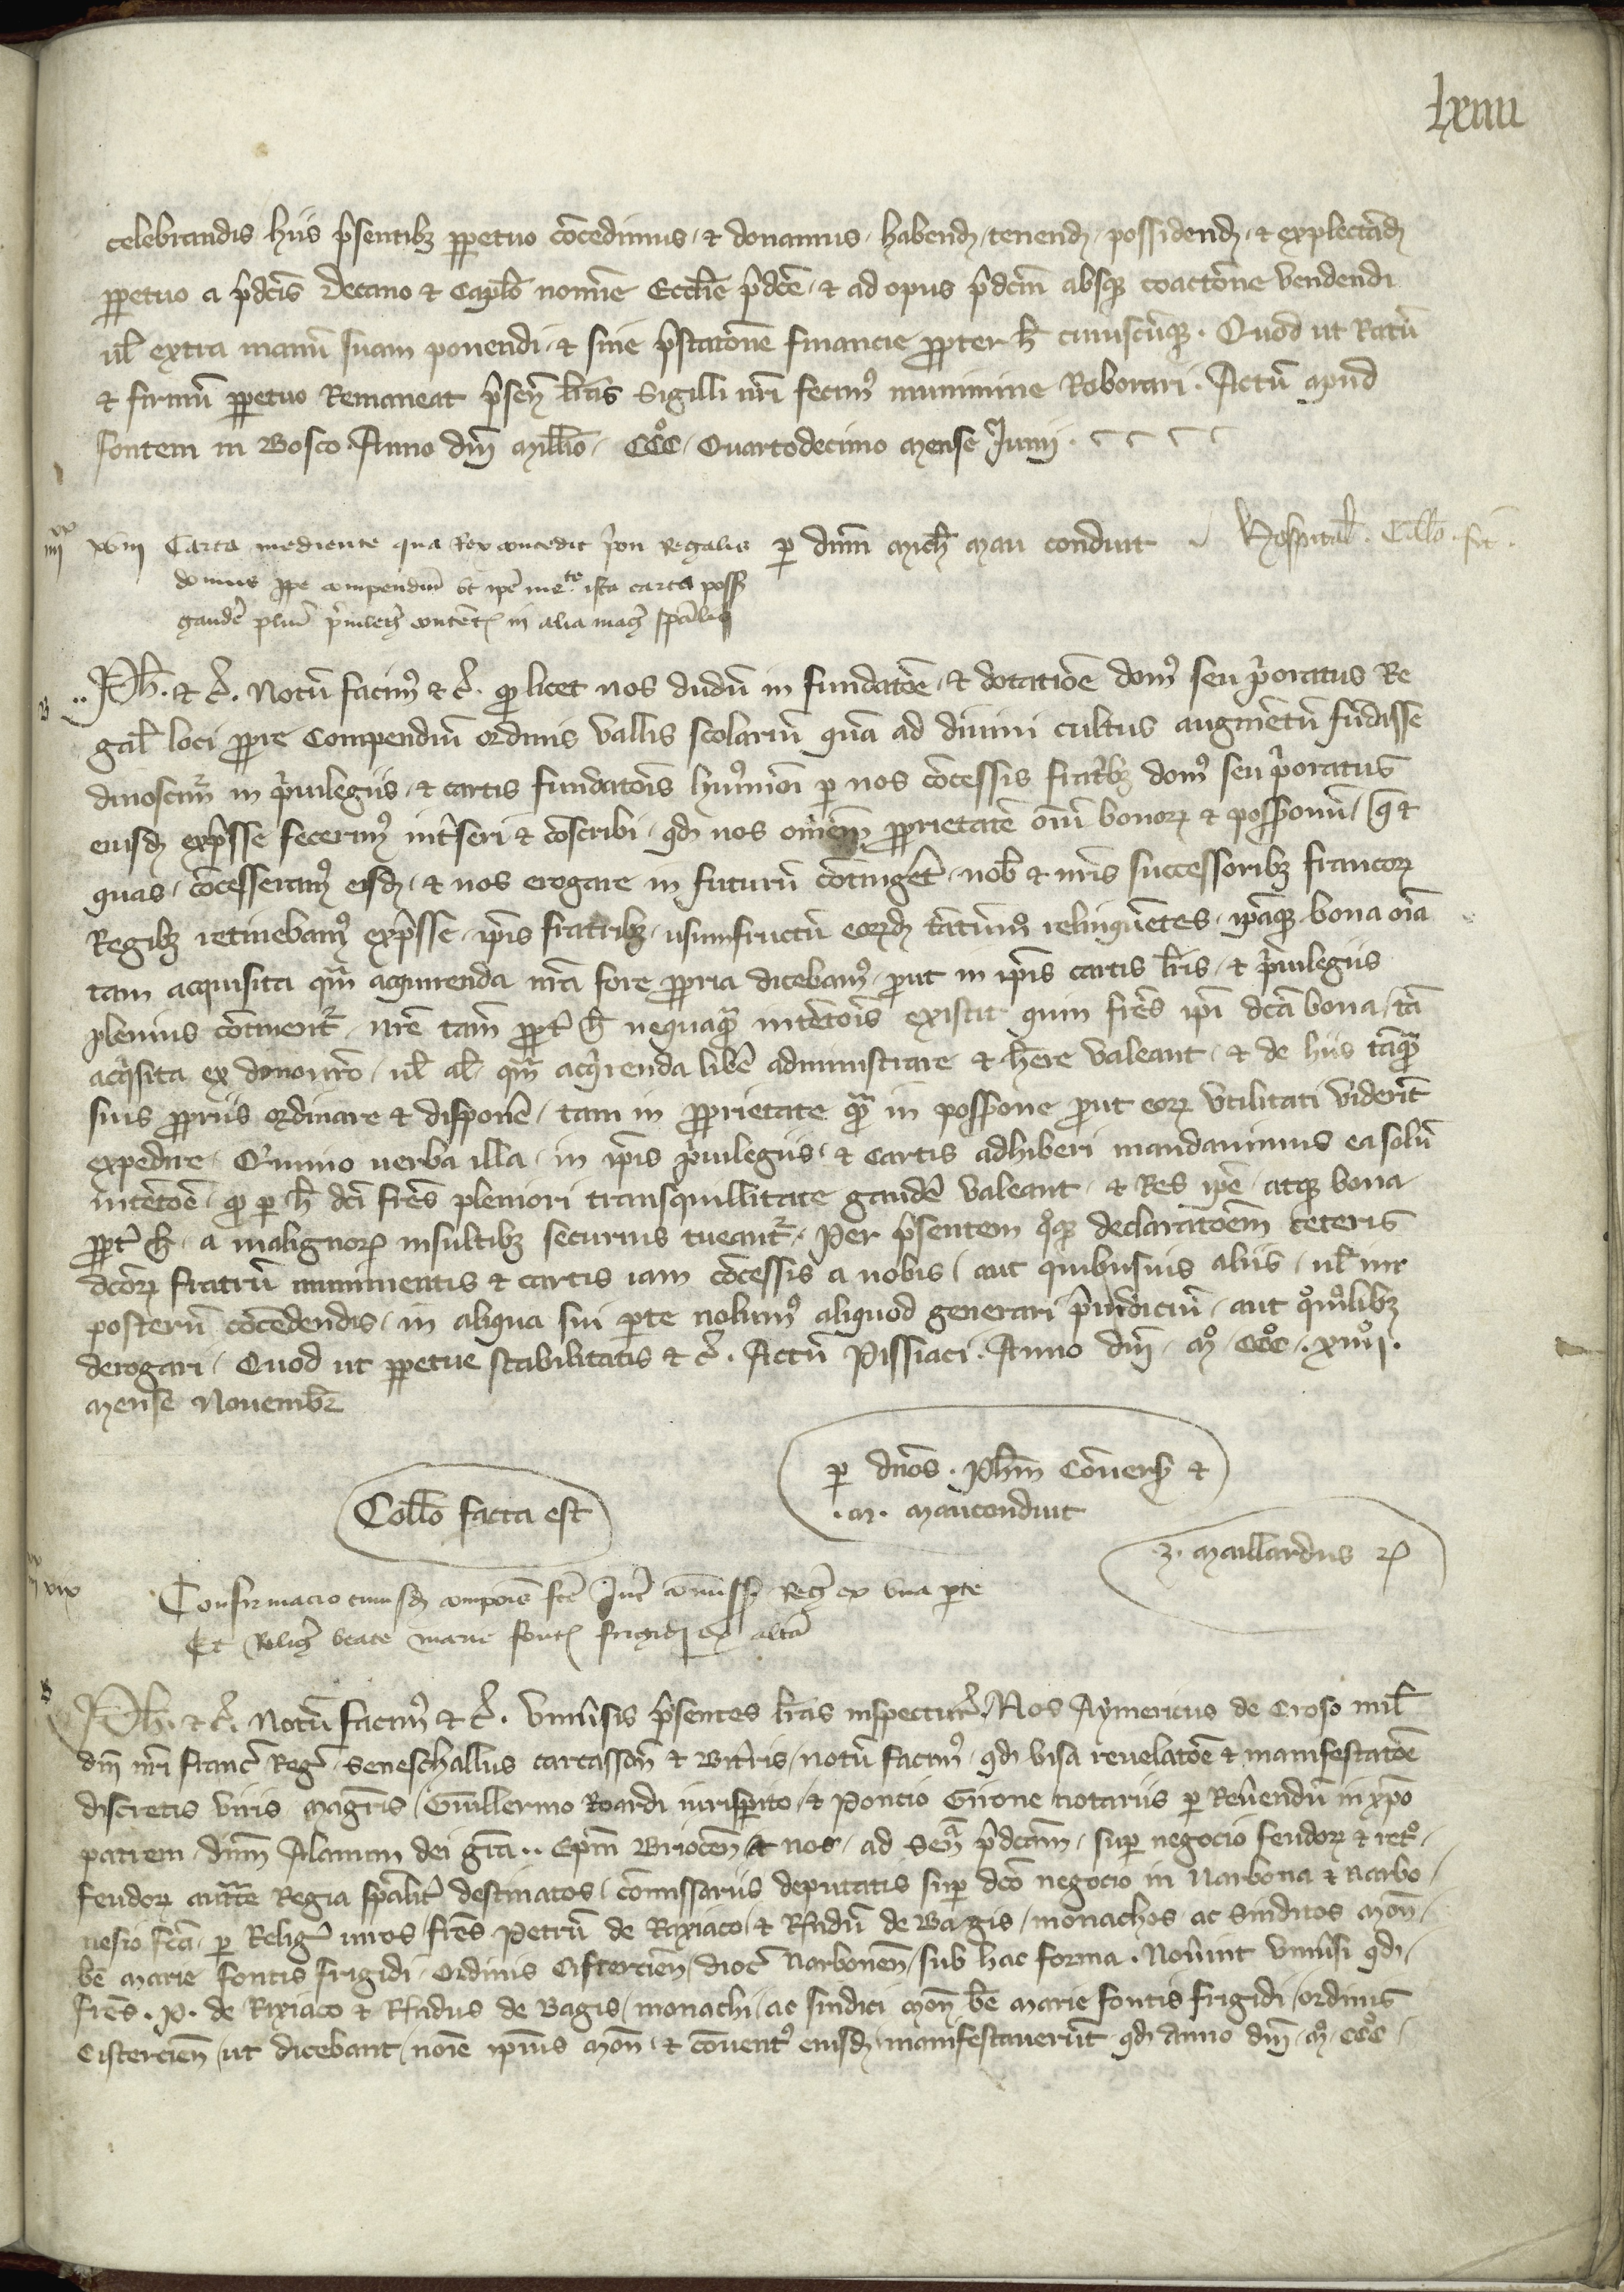 lxiiii
celebrandis hiis p̃sentibꝫ ꝑpetuo cōcedimus, et donamus, habendꝫ, tenendꝫ, possidendꝫ, et explectādꝫ
ꝑpetuo a p̃dcīs Decano et Capl̃o nomīe Eccl̃ie p̃dcē, et ad opus p̃dcm̄ absqꝫ coactōne vendendi
ul̃ extra manū suam ponendi, et sine p̃statōne financie ꝓpter h̄ cuiuscūqꝫ. Quod ut Ratū
et firmū ꝑpetuo Remaneat p̃sen̄ l̃ras Sigilli nr̃i fecimꝰ munimine Roborari. Actū apud
fontem in Bosco. Anno dnī Mill̃io, CCCº, Quartodecimo mense Junij.
iiiixx xviii Carta mediente qua Rex concedit p̃ori Regalis ꝑ dnm̄ Mich̃ Mau conduit Hospital̃. Coll̃o fct̄.
domus ꝓpe compendiū ut ipē me.te ista carta possꝫ
gaudē pluiū p̃uilegꝫ contentꝫ in alia magꝫ sp̄alibꝫ
Ph̃. et c̃. Notū facimꝰ et c̃. qꝫ licet nos dudū in fundatōe, et dotatiōe domꝰ seu p̃oratus Re
gal̃ loci ꝓpe Compendiū ordinis vallis scolariū quā ad diuini cultus augmētū fūdasse
dinoscimꝰ in p̃uilegiis, et cartis fundatōis huiꝰmōi ꝑ nos cōcessis fratribꝫ domꝰ seu p̃oratus
eiusdꝫ exp̃sse fecerimꝰ int̃seri et cōscribi, qd̄ nos omēm ꝓprietatē oīm bonoꝝ et possionū, q̄ et
quas, cōcesseramꝰ eisdꝫ, et nos erogare in futurū cōtinget̃, nob̃ et nr̃is successoribꝫ francoꝝ
Regibꝫ retinebamꝰ exp̃sse, ip̃is fratribꝫ, usumfructū eoꝝdꝫ tātūmō relinquētes, ip̃aqꝫ bona oīa
tam acquisita qm̄ acquirenda nr̃a fore ꝓpria dicebamꝰ, ꝓut in ip̃is cartis l̃ris, et p̃uilegiis
plenius cōtinent̃, nr̃e tam̄ ꝓpt̃ h̄ nequaqꝫ intētōis existit quin fr̃es ip̃i dcā bona, tā
acq̃sita ex dono nr̃o, ul̃ al̃, qm̄ acq̃renda libē administrare et h̃ere valeant, et de hiis tāqꝫ
suis ꝓpriis ordinare et disponē, tam in ꝓprietate qꝫ in possione ꝓut eoꝝ vtilitati viderīt
expedire. Quinimo uerba illa, in ip̃is p̃uilegiis, et cartis adhiberi mandauimus ea solū
intētōe, qꝫ ꝑ h̄ dcī fr̃es pleniori transquillitate gaudē valeant, et Res ip̃e, atqꝫ bona
ꝓpt̃ h̄, a malignoꝝ insultibꝫ securius tueant̃. Per p̃sentem qoqꝫ declaratōem ceteris
dcōꝝ fratrū munimentis et cartis iam cōcessis a nobis, aut quibusuis aliis, ul̃ in
posterū cōcedendis, in aliqua sui ꝑte nolumꝰ aliquod generari p̃iudiciū, aut qomōlibꝫ
derogari. Quod ut ꝑpetue stabilitatis et c̃. Actū Pissiaci. Anno dnī. Mº. CCCº. xiiijº.
mense Nouemb̃r
ꝑ dn̄os. Ph̃m Cōuersꝫ et
.M. Mauconduit
Coll̃o facta est
J. Maillardus ꝝ
xix
Confirmacio cuiusdꝫ compoīs fcē Int̃ cōmissꝫ Regꝫ ex vna ꝑte
Et Religꝫ beate marie fontꝫ frigidi ex altā
Ph̃. et c̃. Notū facimꝰ et c̃. Vniu̾sis p̃sentes l̃ras inspectur̃. Nos Aymericus de Croso mil̃
dnī nr̃i franc̃ Reg̃, Seneschallus carcasson̄ et Bit̃ris, notū facimꝰ, qd̄ visa reuelatōe et manifestatōe
discretis viris Magr̃is, Guillermo Roardi iurisꝑito, et Poncio Girone notariis ꝑ Reu̾endū in xp̃o
patrem dnm̄ Alanum dei gr̃a.. Ep̃m Briocen̄ et nos, ad Sen̄ p̃dcam, suꝑ negocio feudoꝝ et ret̃º,
feudoꝝ auct̃te Regia sp̄alit̃ destinatos, cōmissariis deputatis suꝑ dcō negocio in Narbona et Narbo,
nesio fcā, ꝑ Relig̃ uiros, fr̃es Petrū de Rixiaco, et Rᷠndū de Bagis, monachos ac Sindicos Mon̄,
bē Marie fontis frigidi, Ordinis Cistercien̄, dioc̃ Narbonen̄, sub hac forma. Nou̾int vniu̾si qd̄,
fr̃es. P. de Rixiaco et Rᷠndus de Bagis, monachi, ac sindici Mon̄ bē Marie fontis frigidi, ordinis
Cistercien̄, ut dicebant, noīe ip̃ius Mon̄, et cōuentꝰ eiusdꝫ manifestauerūt qd̄ Anno dnī. Mº. CCCº.